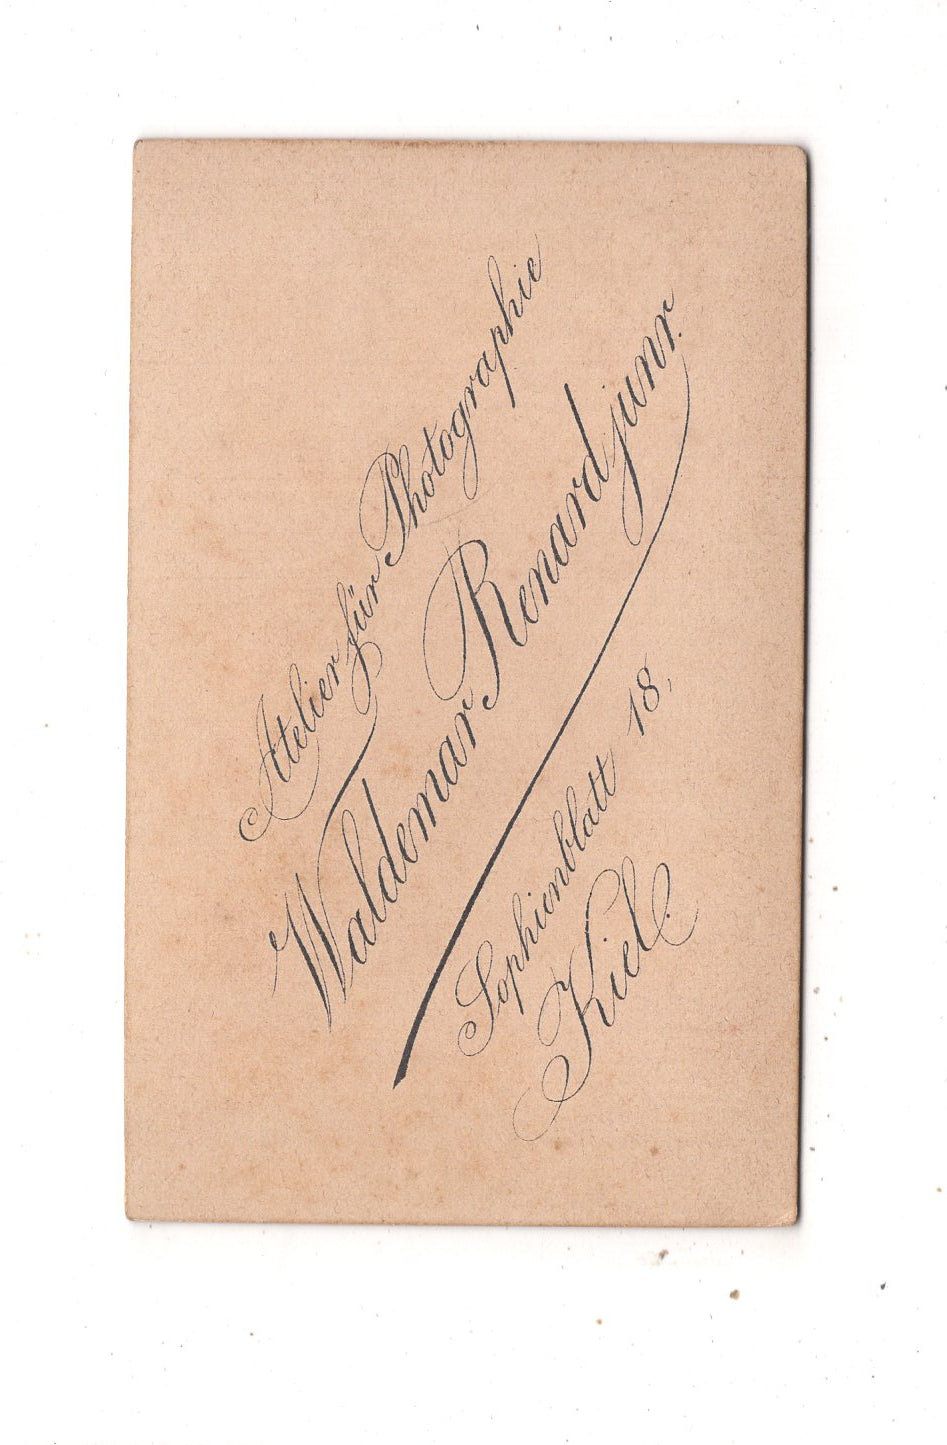 Atelier für Photographie
Waldemar Renard junr.
Sophienblatt 18,
Kiel.